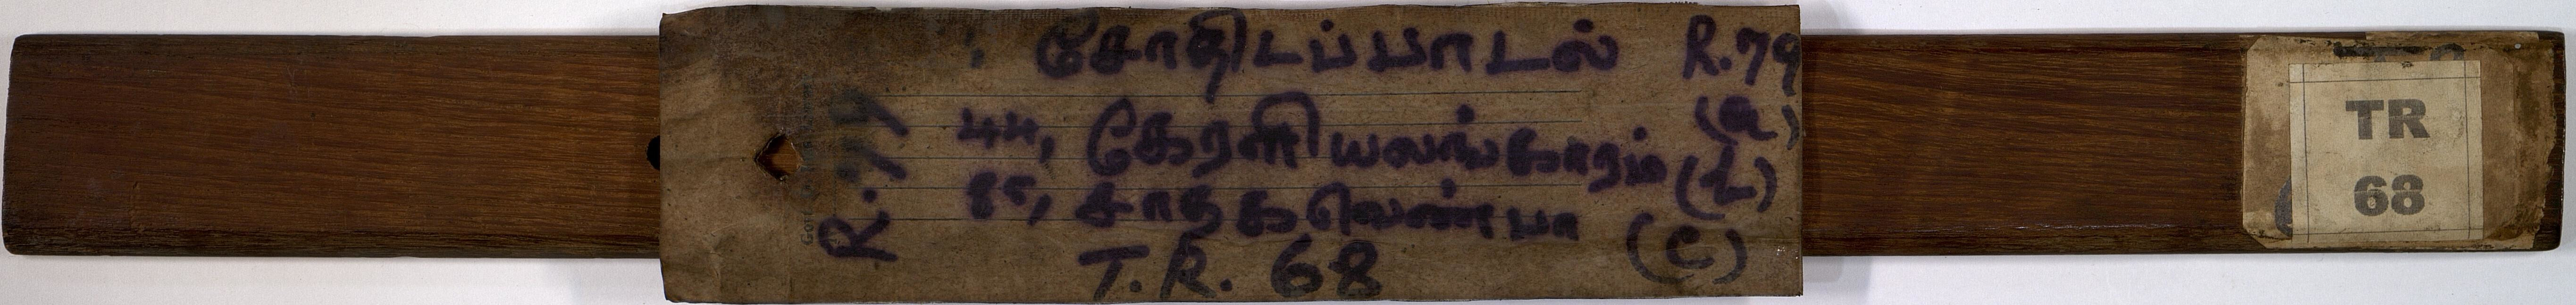 சோதிடப்பாடல் R.79
(a)
44, கேரளி யலங்காரம் (b)
85, சாதகவெண்பா (c)
T.R. 68
R.79
TR
68